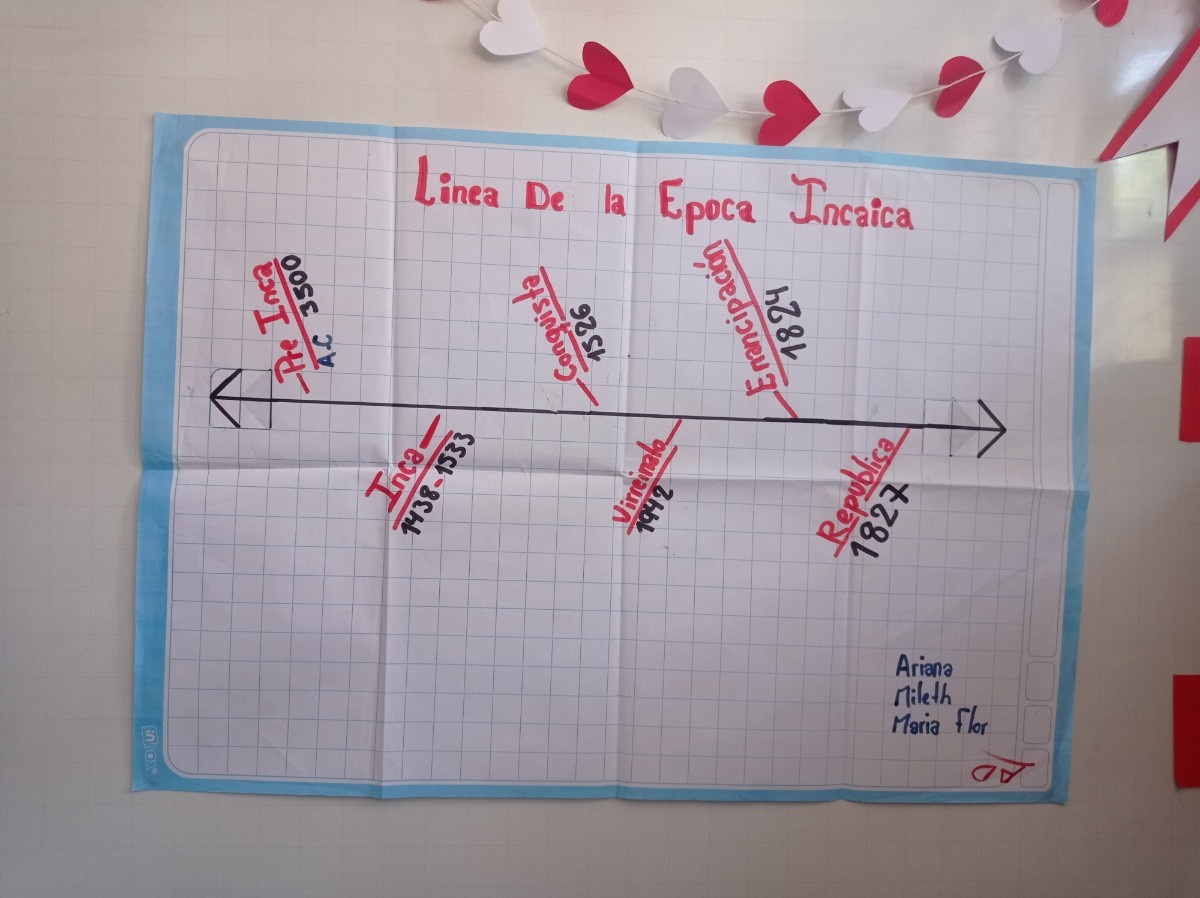 Linea De la Epoca Incaica
Pre Inca
A.C 3500
Inca
1438-1533
Conquista
1526
Virreinato
1942
Emancipación
1824
Republica
1827
Ariana
Mileth
Maria Flor
AD